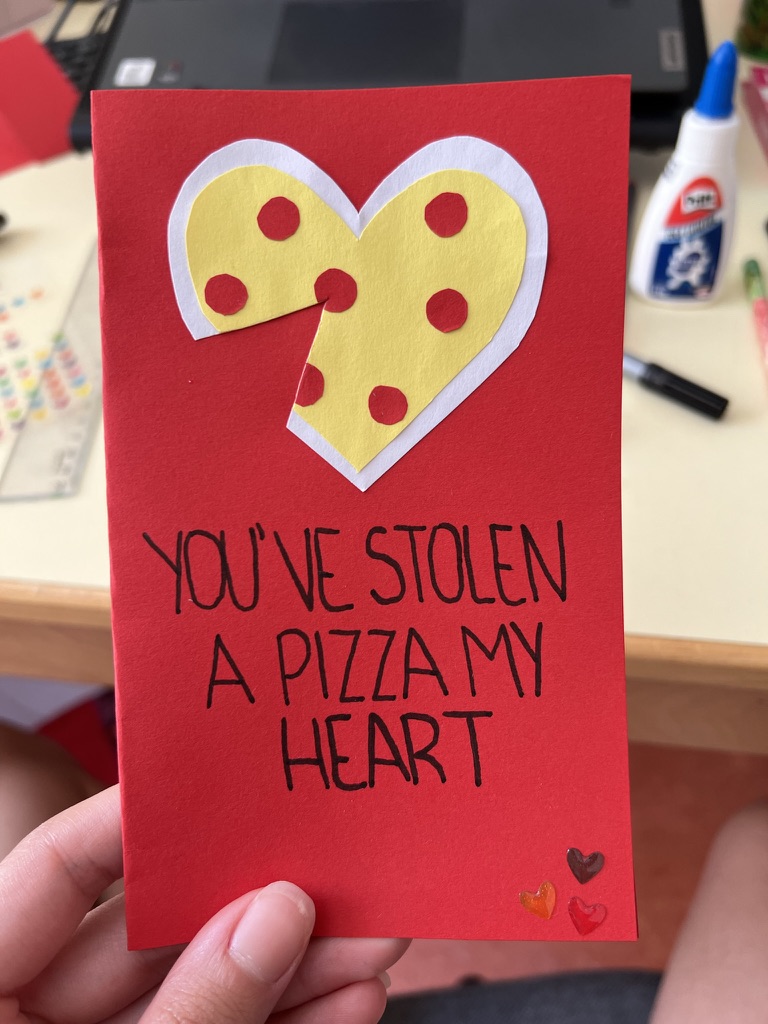 YOU'VE STOLEN
A PIZZA MY
HEART